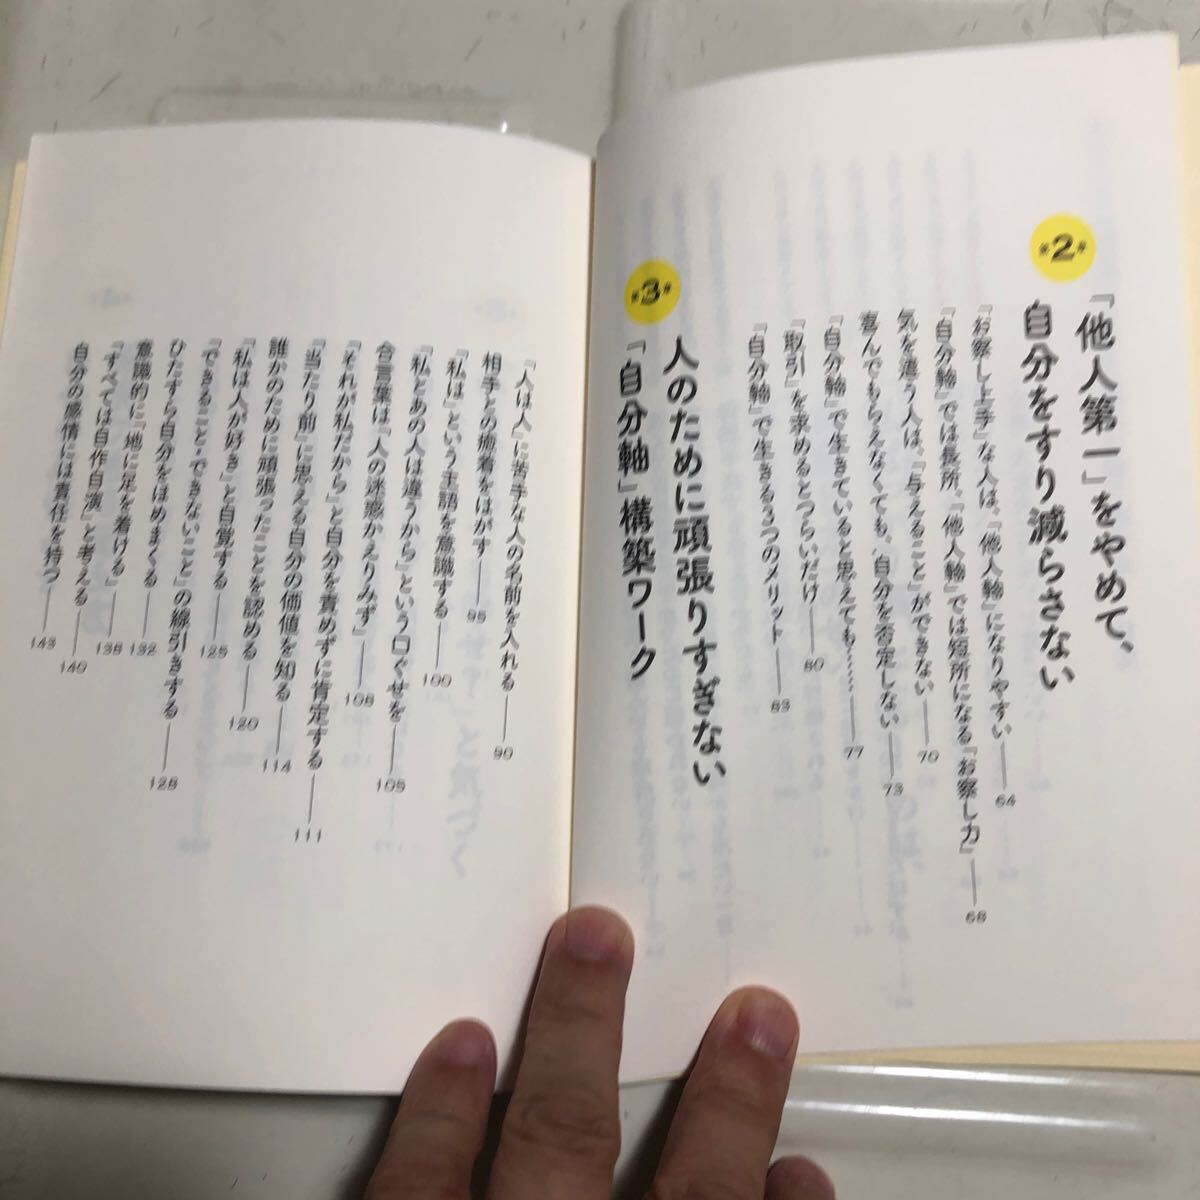 第2章
「他人第一」をやめて、
自分をすり減らさない
「お察し上手」な人は、「他人軸」になりやすい――64
「自分軸」では長所、「他人軸」では短所になる「お察し力」――68
気を遣う人は、「与えること」ができない――70
喜んでもらえなくても、自分を否定しない――73
「自分軸」で生きていると思えても……――77
「取引」を求めるとつらいだけ――80
「自分軸」で生きる3つのメリット――83
第3章
人のために頑張りすぎない
「自分軸」構築ワーク
「人は人」に苦手な人の名前を入れる――90
相手との癒着をはがす――95
「私は」という主語を意識する――100
「私とあの人は違うから」という口ぐせを――105
合言葉は「人の迷惑かえりみず」――108
「それが私だから」と自分を責めずに肯定する――111
「当たり前」に思える自分の価値を知る――114
誰かのために頑張ったことを認める――120
「私は人が好き」と自覚する――125
「できること・できないこと」の線引きする――128
ひたすら自分をほめまくる――132
意識的に「地に足を着ける」――138
「すべては自作自演」と考える――140
自分の感情には責任を持つ――143